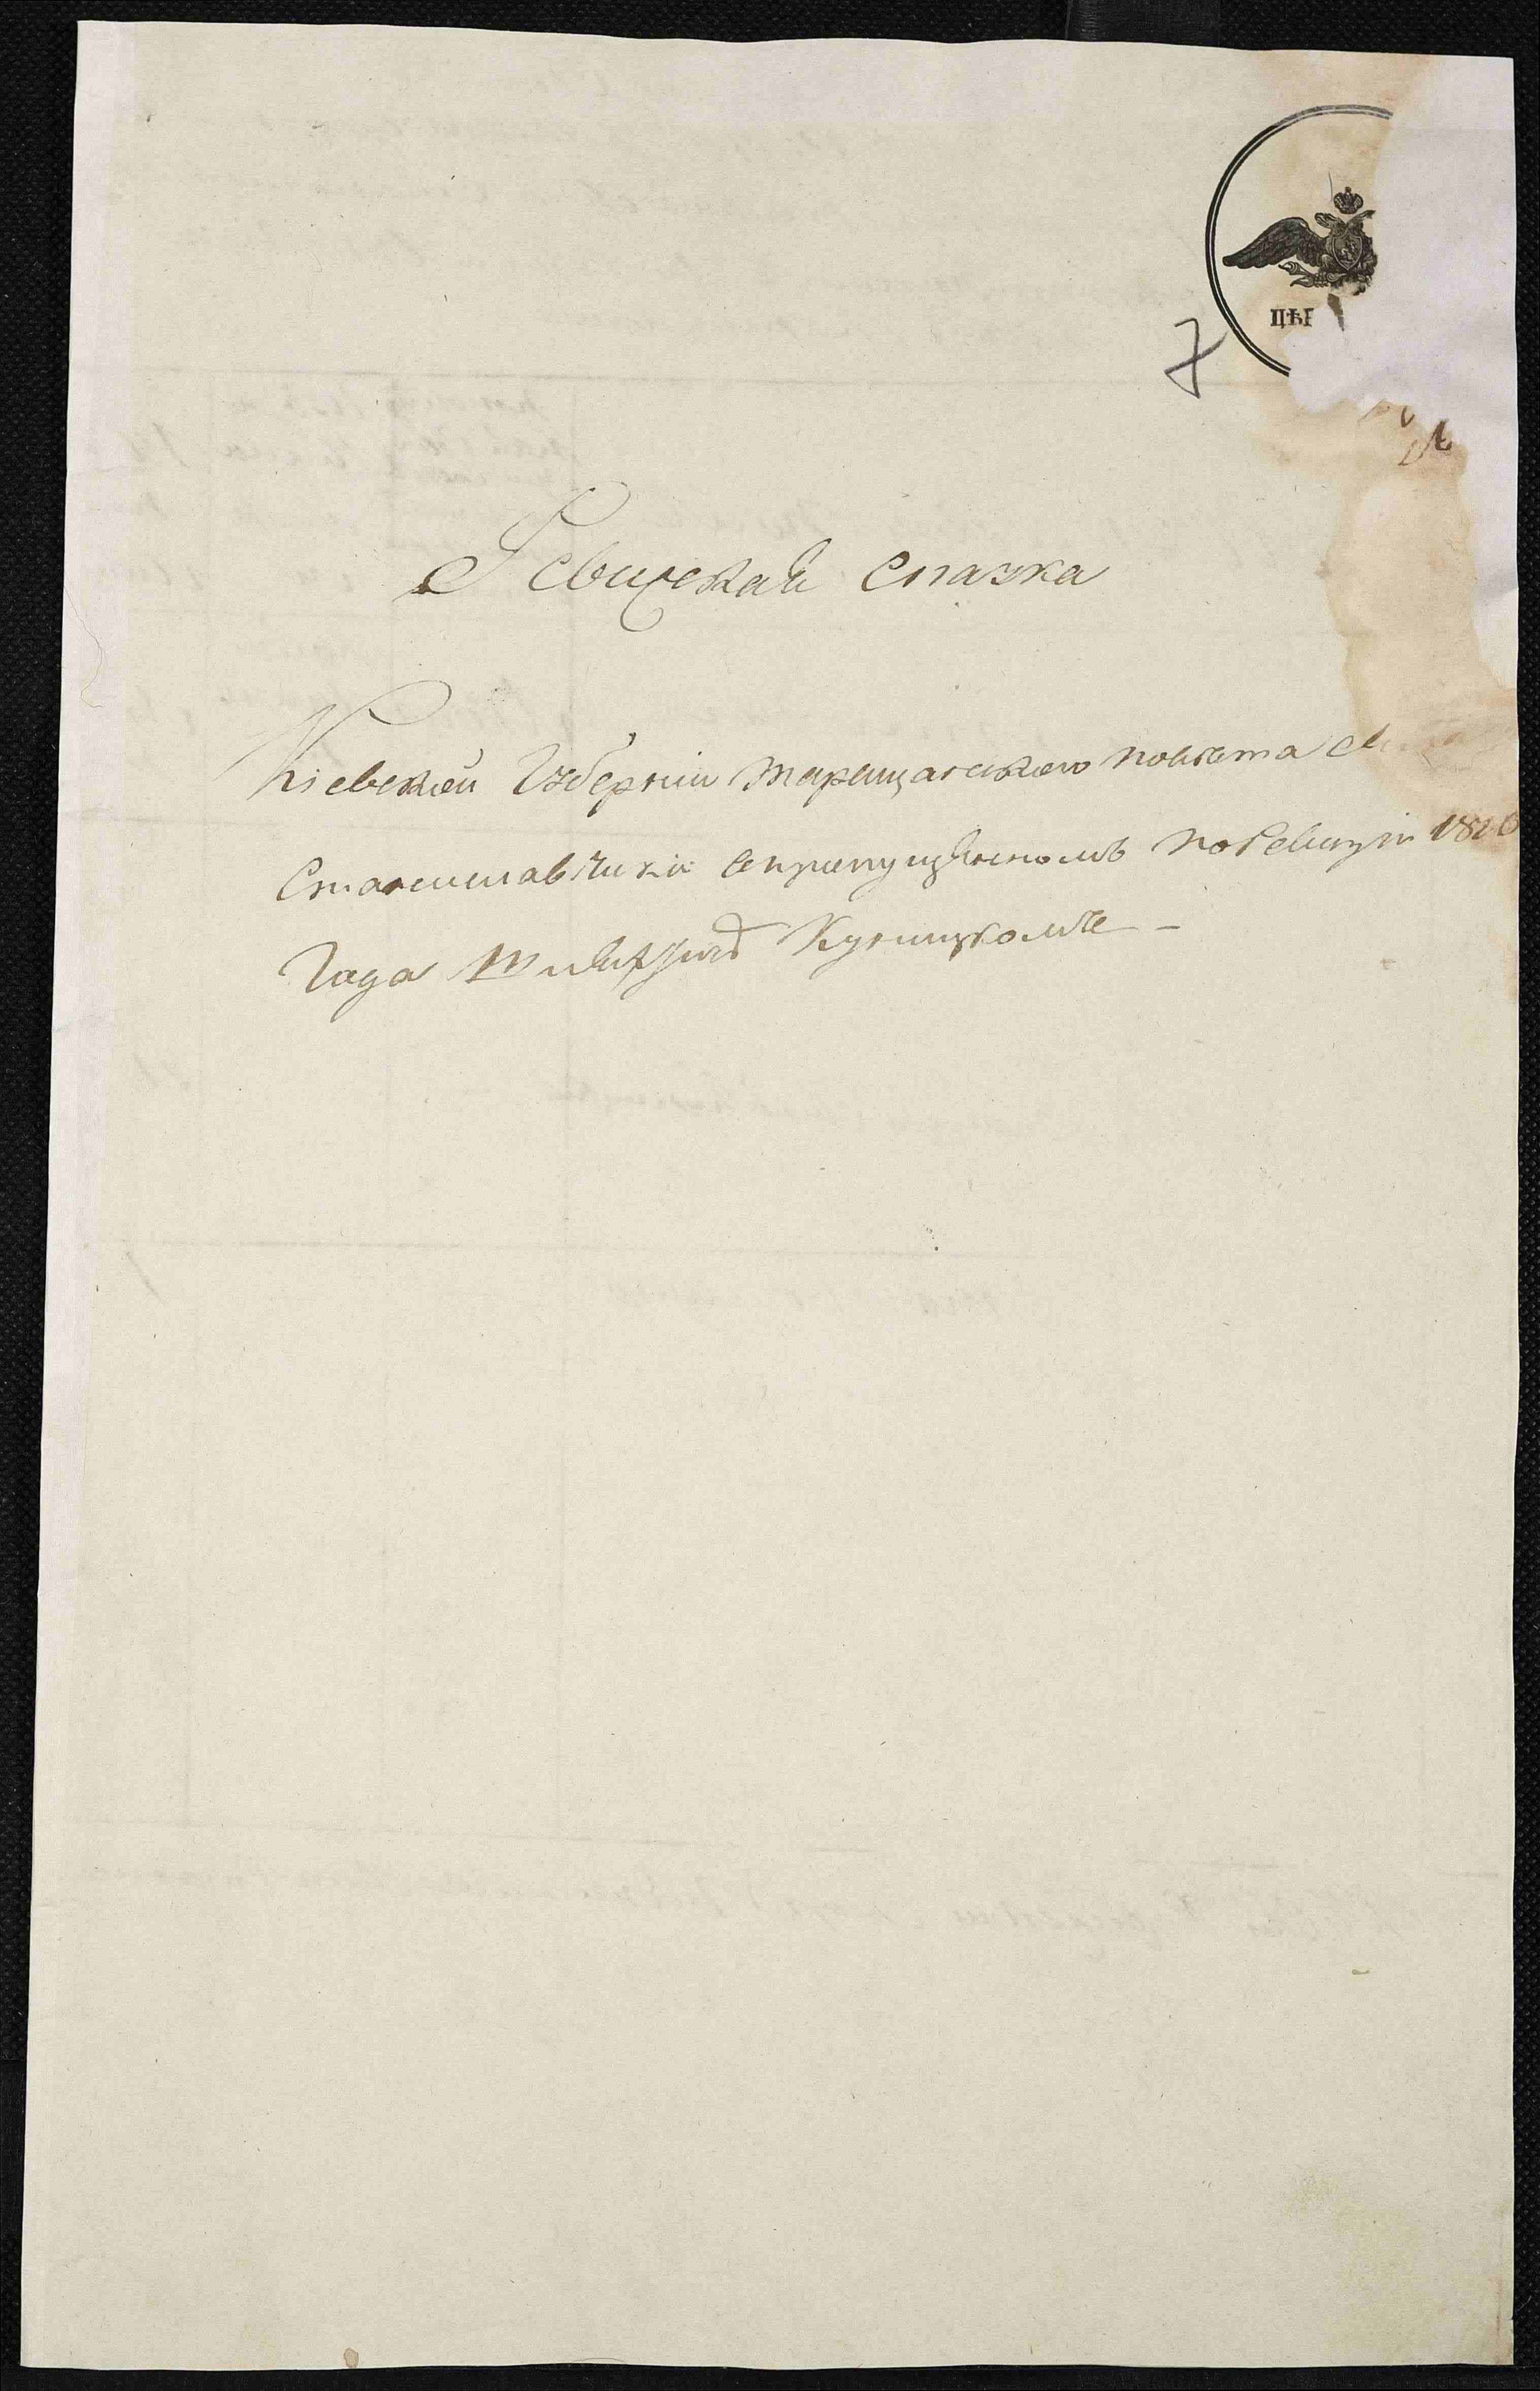 ЦѢ
7
Ревизская сказка
Кіевской Губерніи Таращанского повѣта
Станиславчики о пропущенномъ по Ревизіи 18
Года Кулицкомъ